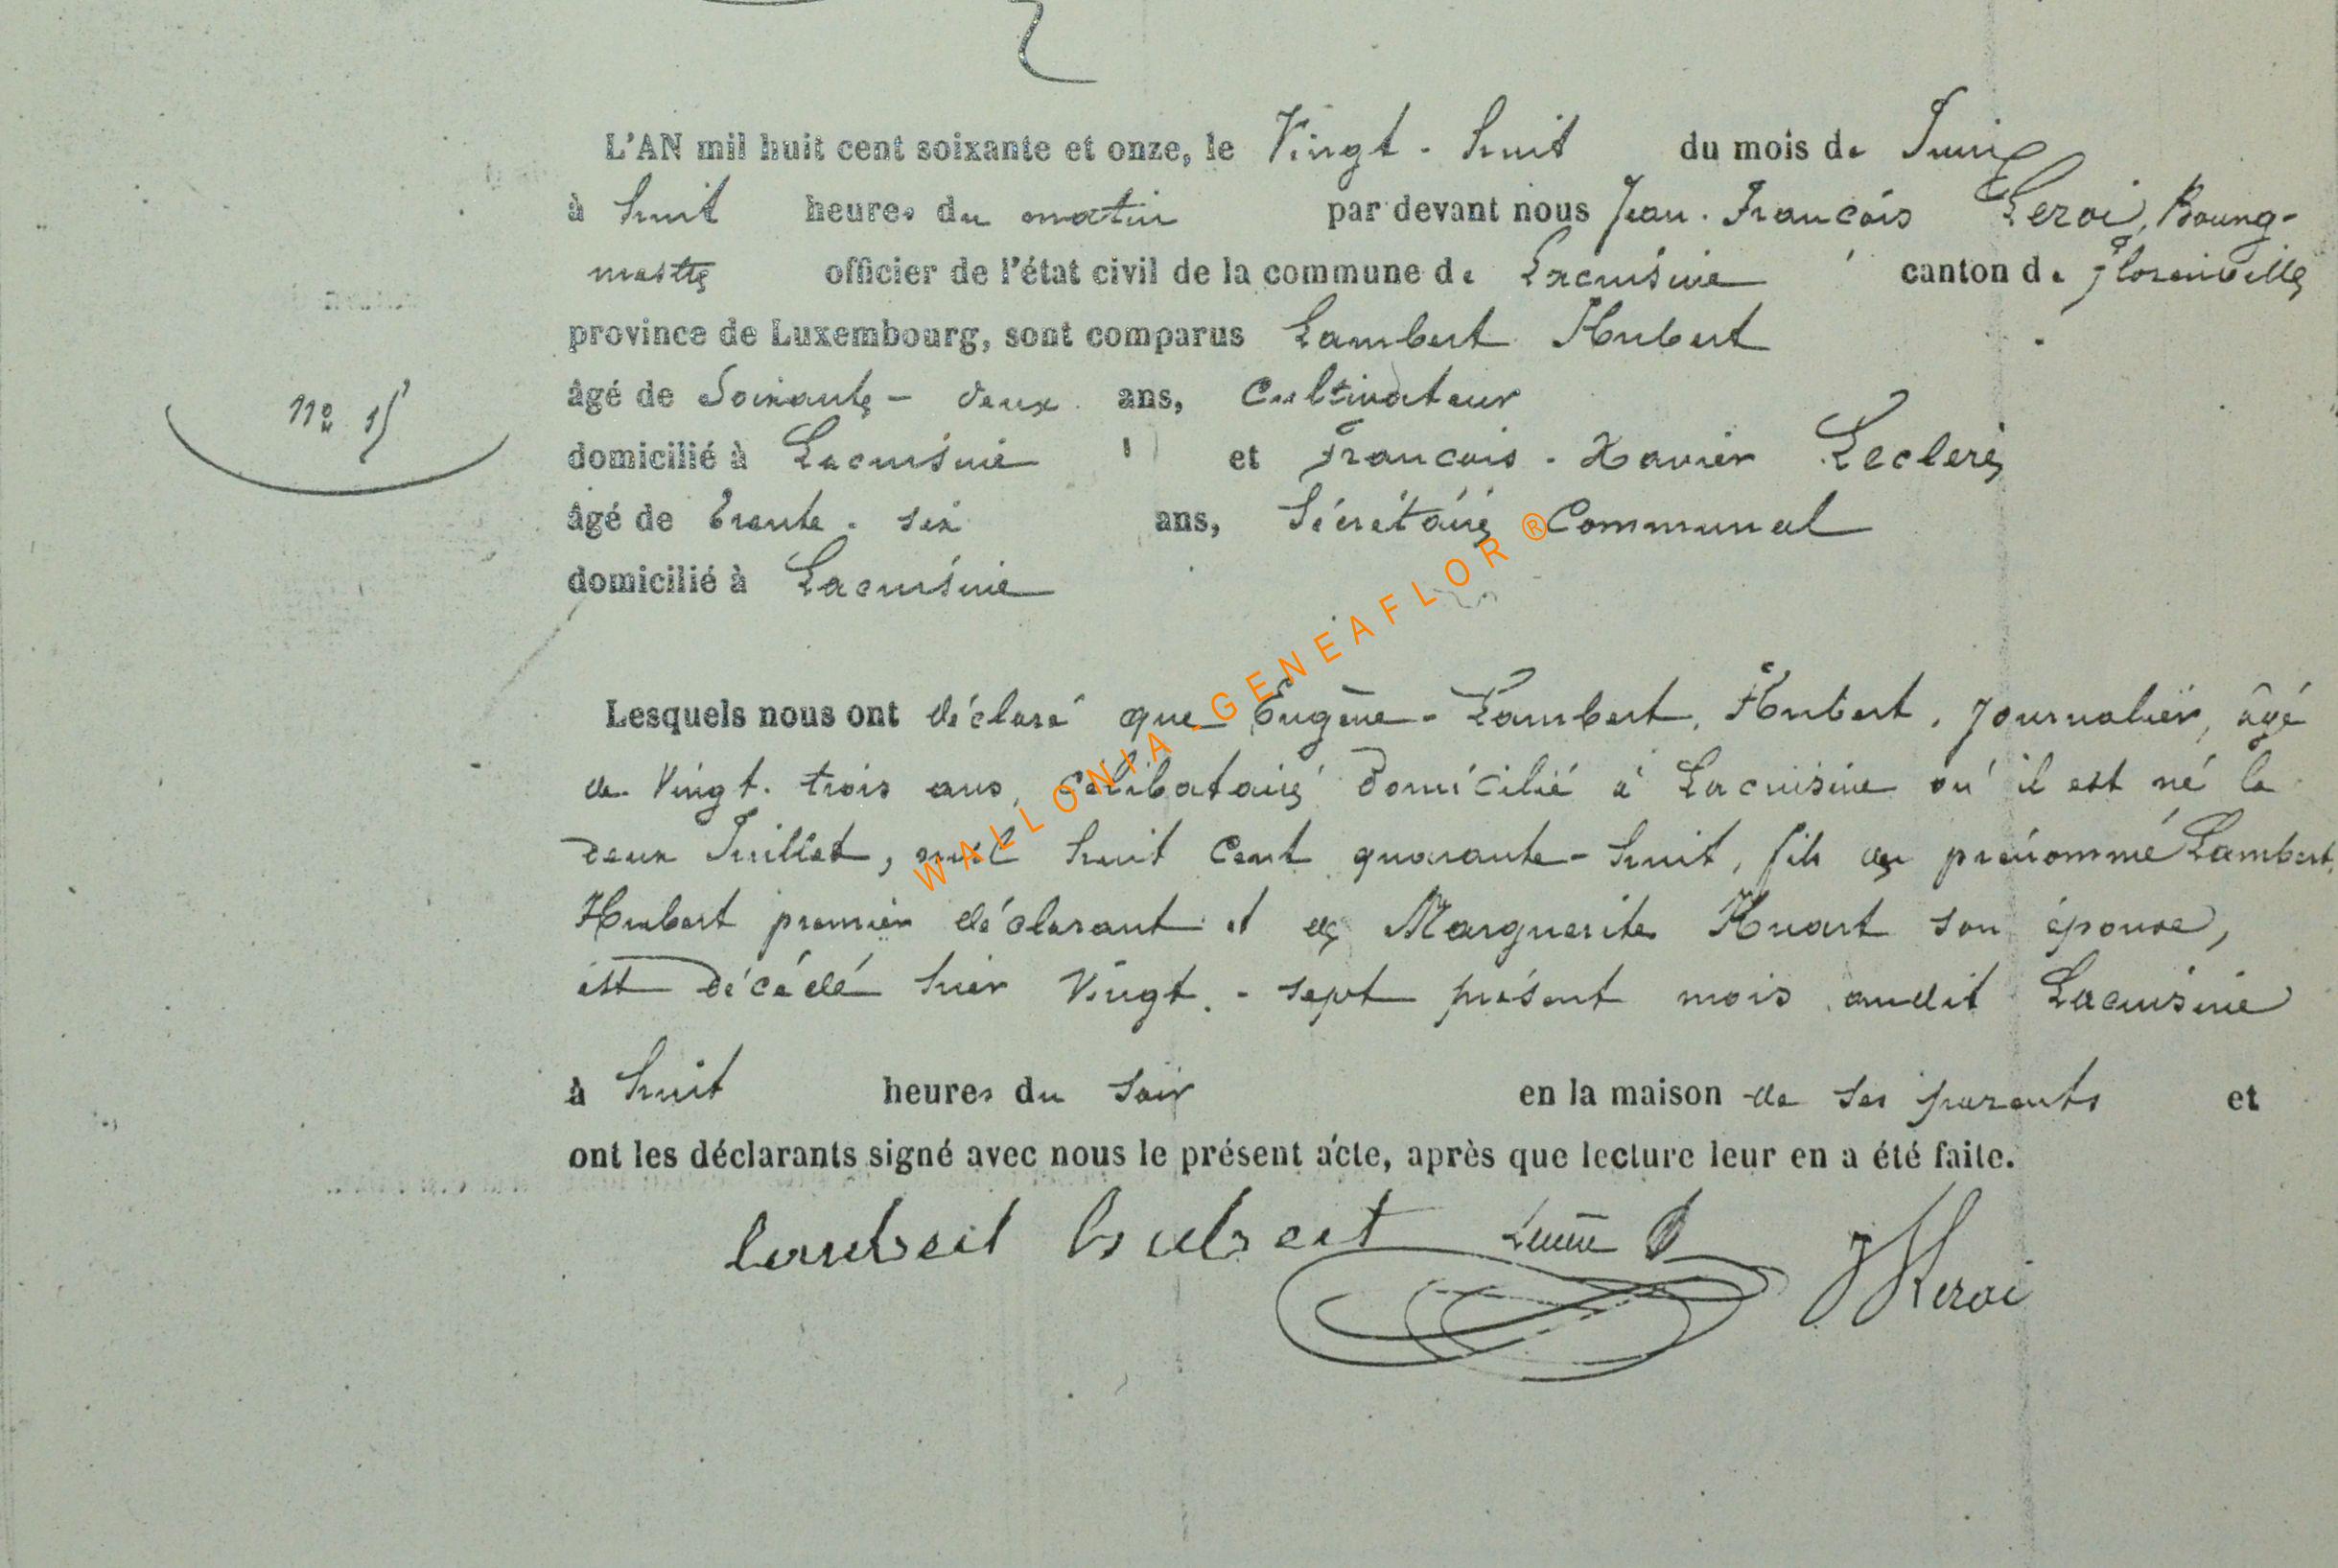 L'AN mil huit cent soixante et onze, le Vingt-huit du mois de Juin
à huit heures du matin par devant nous Jean-François Leroi, Bourg-
mestre officier de l'état civil de la commune de Lacuisine canton de Florenville
province de Luxembourg, sont comparus Lambert Hubert
âgé de Soixante-deux ans, Cultivateur
N° 15
domicilié à Lacuisine et François-Xavier Leclere
âgé de trente-six ans, Sécrétaire Communal
domicilié à Lacuisine
Lesquels nous ont déclaré que Eugène-Lambert Hubert, Journalier, âgé
de Vingt-trois ans, Célibataire domicilié à Lacuisine où il est né le
deux Juillet, mil huit Cent quarante-huit, fils du prénommé Lambert
Hubert premier déclarant et de Marguerite Huart son épouse,
est décédé hier Vingt-sept présent mois audit Lacuisine
à huit heures du soir en la maison de ses parents et
ont les déclarants signé avec nous le présent acte, après que lecture leur en a été faite.
lambert hubert JLeroi
WALLONIA-GENEAFLOR ®